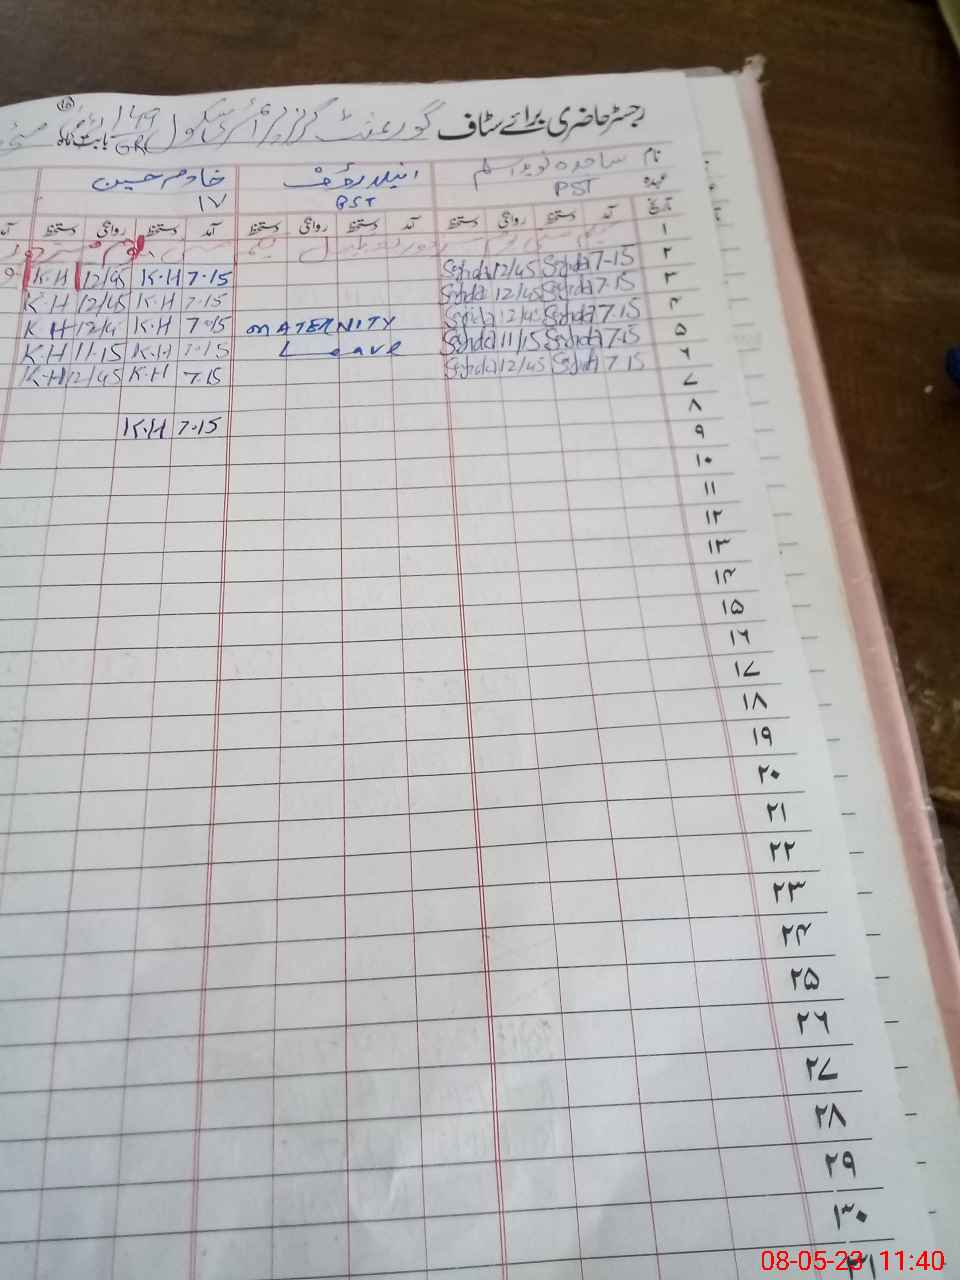 رجسٹر حاضری برائے سٹاف گورنمنٹ گرلز پرائمری سکول 149 GR بابت ماہ مئی
نام ساجدہ نوید اسلم خادم حسین
عہدہ PST PST ١٧
تاریخ آمد دستخط روانگی دستخط آمد دستخط روانگی دستخط آمد دستخط روانگی دستخط
١
٢ 7-15 Sajida 12/45 Sajida 7-15 K.H 12/45 K.H
٣ 7-15 Sajida 12/45 Sajida 7-15 K.H 12/45 K.H
٤ 7-15 Sajida 12/4 Sajida MATERNITY 7-15 K.H 12/4 K.H
٥ 7-15 Sajida 11/15 Sajida Leave 7-15 K.H 11-15 K.H
٦ 7-15 Sajida 12/45 Sajida 7.15 K.H 12/45 K.H
٧
٨ 7-15 K.H
٩
١٠
١١
١٢
١٣
١٤
١٥
١٦
١٧
١٨
١٩
٢٠
٢١
٢٢
٢٣
٢٤
٢٥
٢٦
٢٧
٢٨
٢٩
٣٠
٣١
08-05-23 11:40